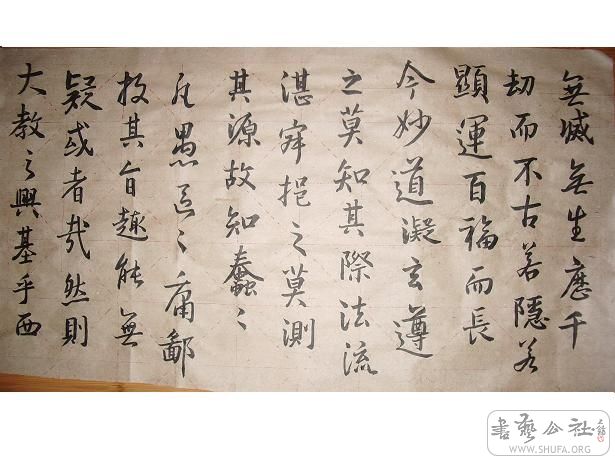 無滅無生歷千
劫而不古若隱若
顯運百福而長
今妙道凝玄遵
之莫知其際法流
湛寂挹之莫測
其源故知蠢〻
凡愚區〻庸鄙
投其旨趣能無
疑或者哉然則
大教之興基乎西
書藝公社
WWW.SHUFA.ORG